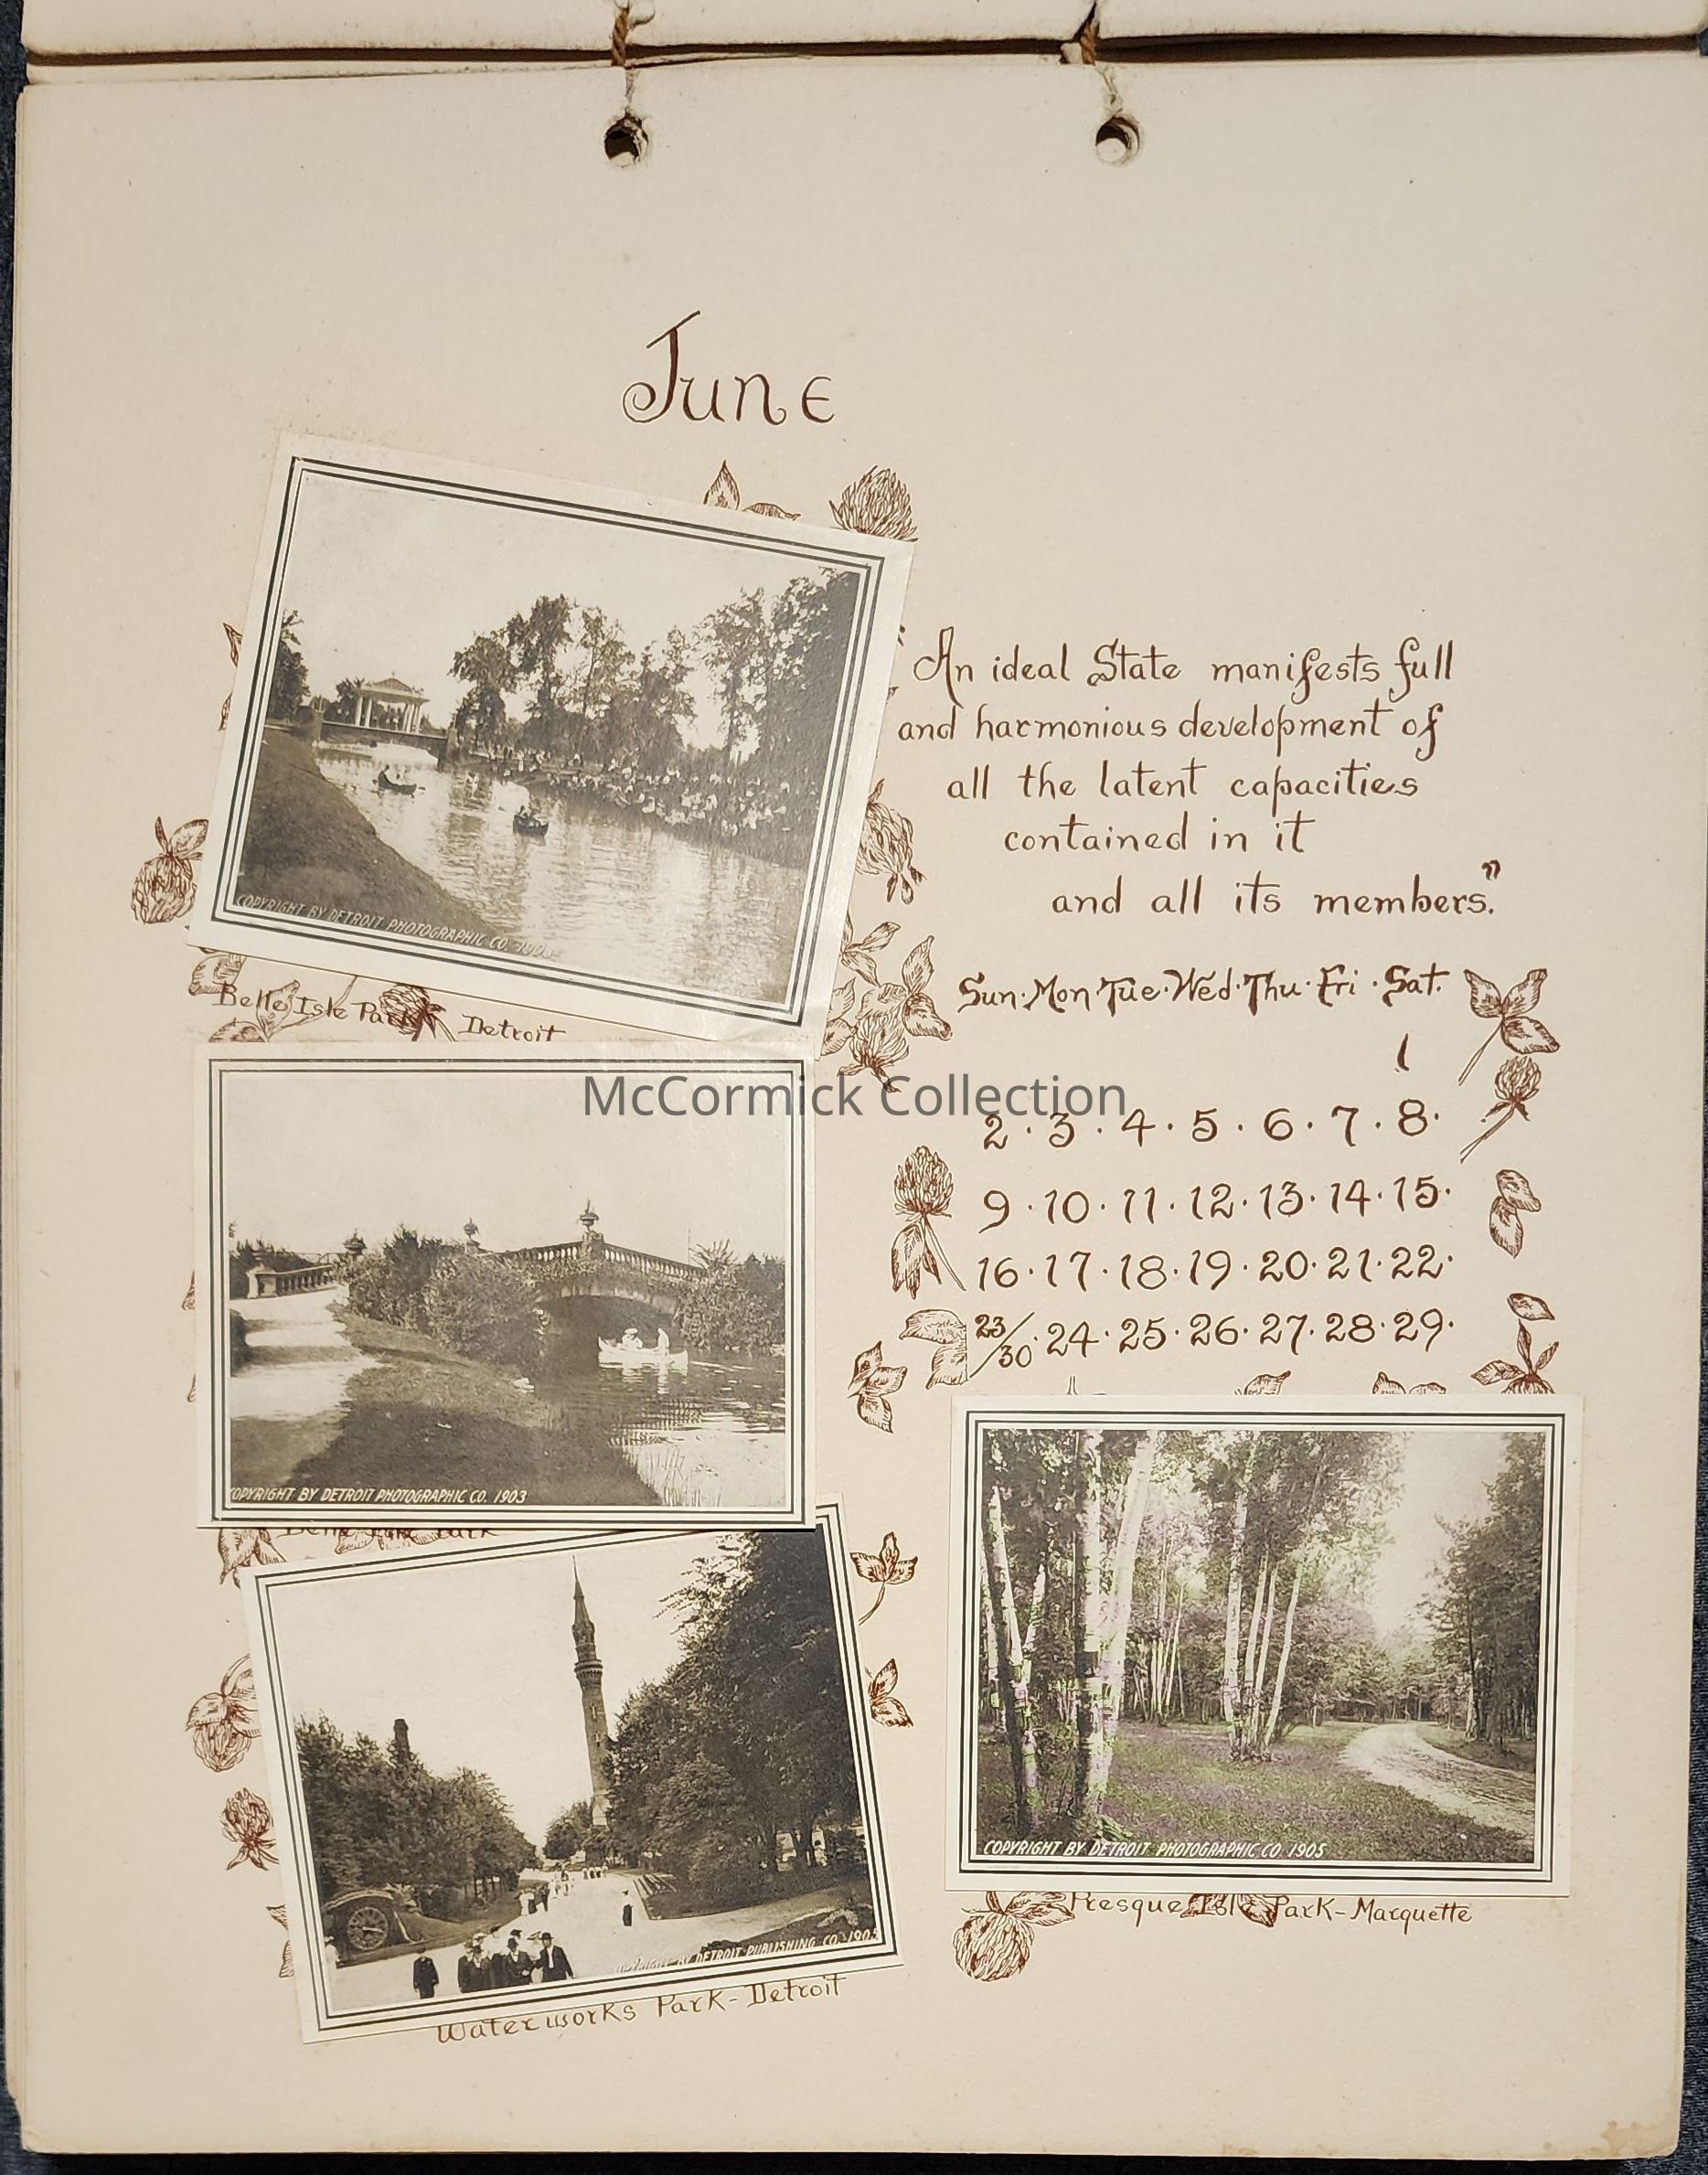 June
COPYRIGHT BY DETROIT PHOTOGRAPHIC CO.
Belle Isle Park Detroit
"An ideal State manifests full
and harmonious development of
all the latent capacities
contained in it
and all its members."
Sun·Mon·Tue·Wed·Thu·Fri·Sat.
1
McCormick Collection
2·3·4·5·6·7·8·
9·10·11·12·13·14·15·
16·17·18·19·20·21·22·
23/30·24·25·26·27·28·29·
COPYRIGHT BY DETROIT PHOTOGRAPHIC CO. 1903
Belle Isle Park
BY DETROIT PUBLISHING CO.
Waterworks Park-Detroit
COPYRIGHT BY DETROIT PHOTOGRAPHIC CO. 1905
Presque Isle Park-Marquette